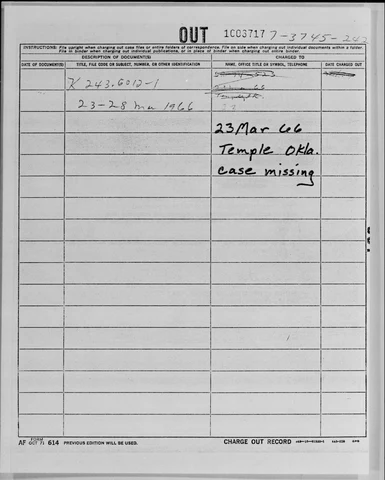 OUT 1003717 7-3745-242
INSTRUCTIONS: File upright when charging out case files or entire folders of correspondence. File on side when charging out individual documents within a folder.
File in binder when charging out individual publications, or in place of binder when charging out entire binder.
DESCRIPTION OF DOCUMENT(S) CHARGED TO
DATE OF DOCUMENT(S) TITLE, FILE CODE OR SUBJECT, NUMBER, OR OTHER IDENTIFICATION NAME, OFFICE TITLE OR SYMBOL, TELEPHONE DATE CHARGED OUT
K 243.6012-1
23-28 Mar 1966
23 Mar 66
Temple Okla.
Case missing
AF FORM OCT 71 614 PREVIOUS EDITION WILL BE USED. CHARGE OUT RECORD